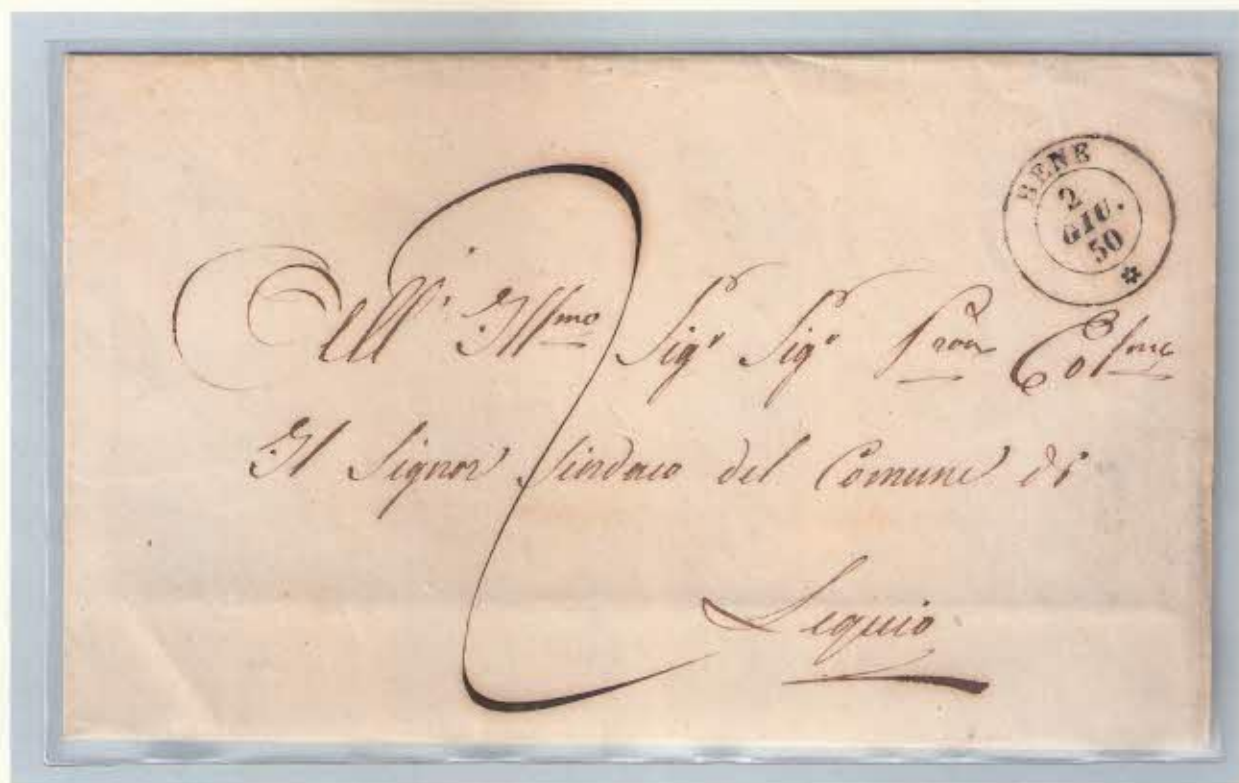 BENE
2
GIU.
50
2
All' Ill.mo Sig.r Sig.r Pron Col.mo
Il Signor Sindaco del Comune di
Lequio